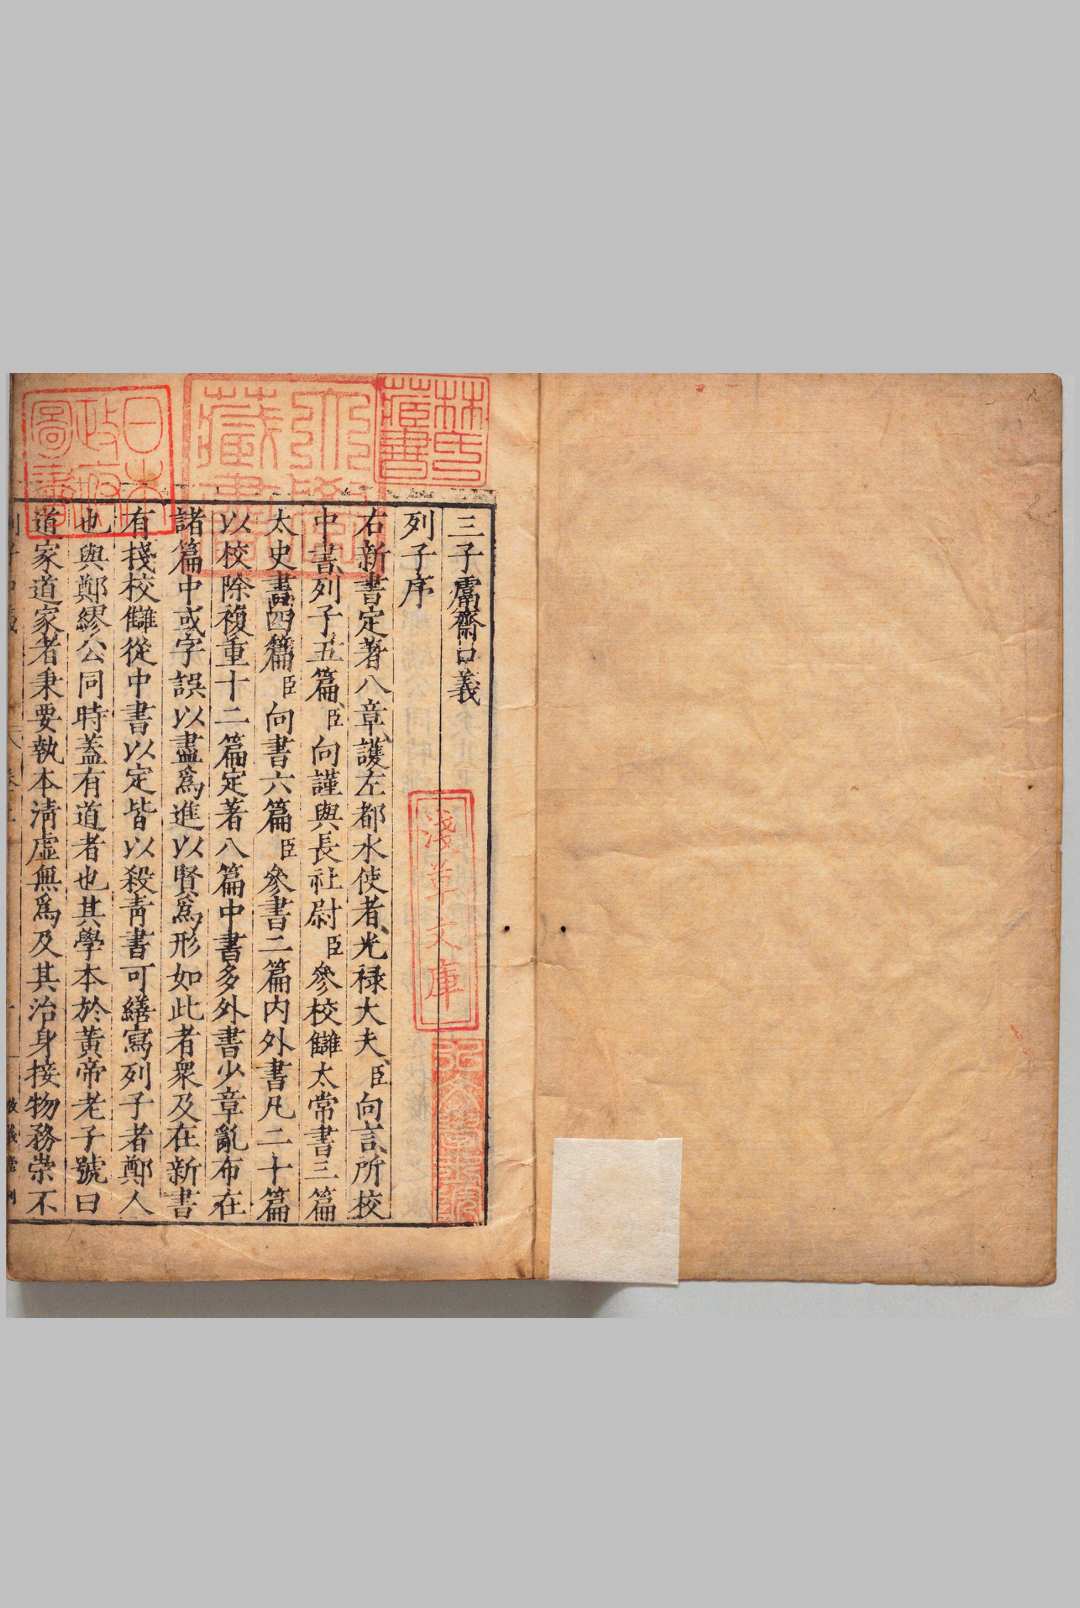 三子鬳齋口義
列子序
右新書定著八章護左都水使者光禄大夫臣向言所校
中書列子五篇臣向謹與長社尉臣參校讎太常書三篇
太史書四篇臣向書六篇臣參書二篇内外書凡二十篇
以校除複重十二篇定著八篇中書多外書少章亂布在
諸篇中或字誤以盡爲進以賢爲形如此者衆及在新書
有棧校讎從中書以定皆以殺青書可繕寫列子者鄭人
也與鄭繆公同時蓋有道者也其學本於黃帝老子號曰
道家道家者秉要執本清虛無爲及其治身接物務崇不
林氏藏書
日本政府圖書
淺草文庫